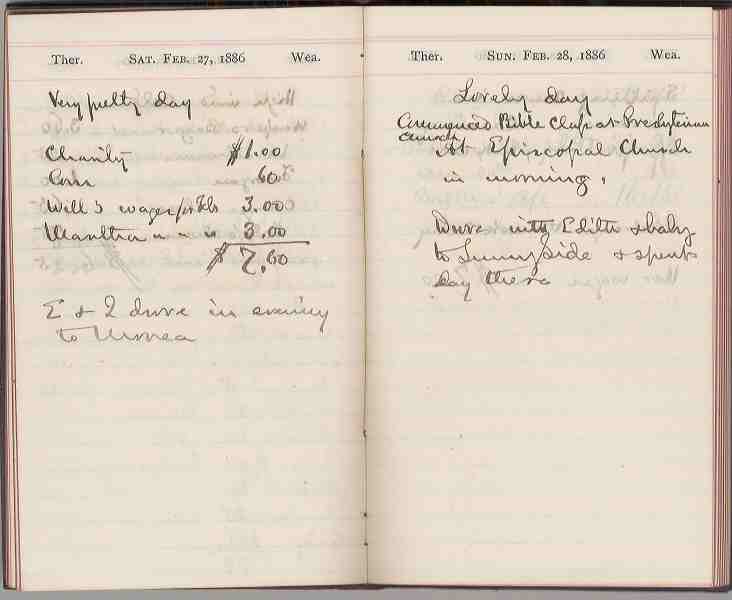 Ther. SAT. FEB. 27, 1886 Wea.
Very pretty day
Charity $1.00
Corn 60
Will's wages for Feb 3.00
Martha " " " 3.00
$7.60
E & I drove in evening
to
Ther. SUN. FEB. 28, 1886 Wea.
Lovely day
Commenced Bible Class at Presbyterian
Church
At Episcopal Church
in morning.
Drove with Edith & baby
to Sunnyside & spent
day there